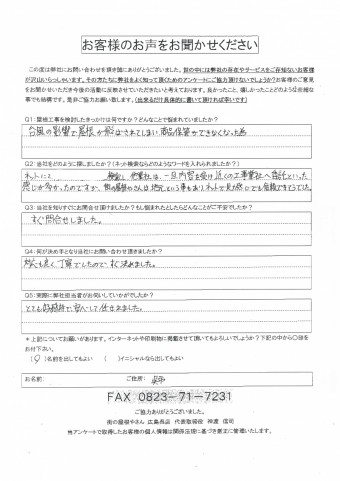 お客様のお声をお聞かせください
この度は弊社にお問い合わせを頂き誠にありがとうございました。世の中には弊社の存在やサービスをご存知ないお客様
が沢山いらっしゃいます。その方たちに弊社をよく知って頂くためのアンケートにご協力頂けないでしょうか?お客様のご意
見をお聞かせいただき今後の活動に反映させていただきたいと考えております。良かったこと、嬉しかったことどのような些細な
事でも結構です。是非ご協力お願い致します。(出来るだけ具体的に書いて頂ければ幸いです)
Q1:屋根工事を検討したきっかけは何ですか?どんなことで悩まれていましたか?
台風の影響で屋根が飛ばされてしまい商品保管ができなくなった為
Q2:当社をどのように探しましたか?(ネット検索ならどのようなワードを入れられましたか?)
ネットにて 検索し 他業社は、一旦内容を受け近くの工事業社へ委託といった
感じが多かったのですが、街の屋根やさんは地元という事もありネットで見た感じでも信頼できそうでした。
Q3:当社を知りすぐにお問合せ頂けましたか?もし悩まれたとしたらどんなことがご不安でしたか?
すぐ問合せしました。
Q4:何が決め手となり当社にお問い合わせ頂きましたか?
も良く丁寧でしたので、すぐ決めました。
Q5:実際に弊社担当者がお伺いしていかがでしたか?
とても好感持て、安心して任せれました。
*上記についてお願いがあります。インターネットや印刷物に掲載させて頂いてもよろしいでしょうか?下記の中から○印を
お付け下さい。
(○)名前を出してもよい ( )イニシャルなら出してもよい
お名前: ご住所: 呉市
FAX 0823-71-7231
ご協力ありがとうございました。
街の屋根やさん 広島呉店 代表取締役 神渡 信司
尚アンケートで取得したお客様の個人情報は関係法規に基づき厳正に管理いたします。